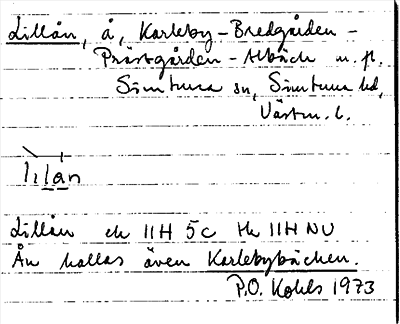 Lillån, å, Karleby-Bredgården -
Prästgården - Albäck m. fl.
Simtuna sn, Simtuna hd,
Västm. l.
lilan
Lillån ek 11H 5c tk 11H NV
Ån kallas även Karlebybäcken.
P.O. Kohls 1973